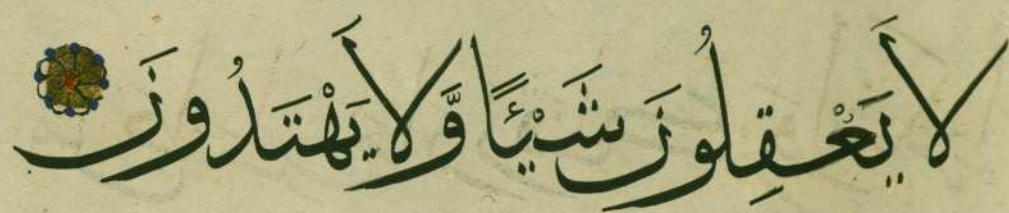 لَا يَعْقِلُونَ شَيْئًا وَّلَا يَهْتَدُونَ